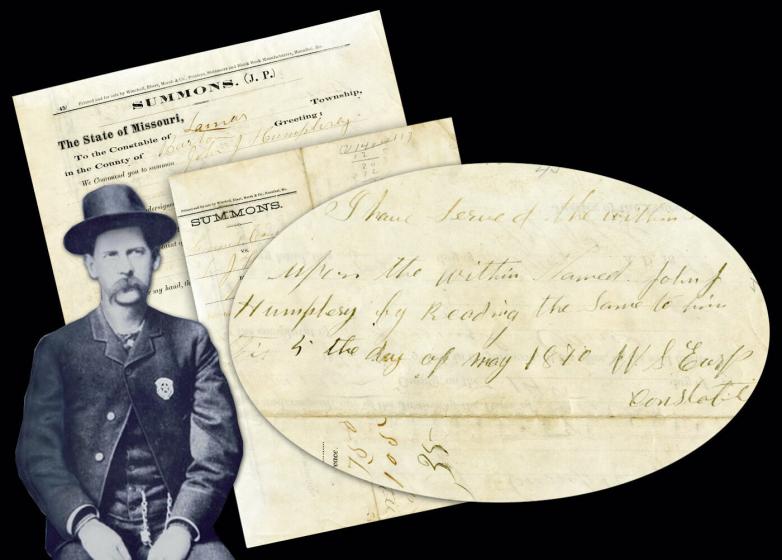 Printed and for sale by Winchell, Ebert, Marsh & Co., Printers, Stationers and Blank Book Manufacturers, Hannibal, Mo.
SUMMONS. (J. P.)
Township,
The State of Missouri,
To the Constable of Lamar Greeting:
in the County of Barton
We Command you to summon John J Humphrey
my hand, th
SUMMONS.
vs.
I have Served the within
upon the within Named John J
Humphrey by Reading the Same to him
this 5 the day of may 1870 W S Earp
Constable